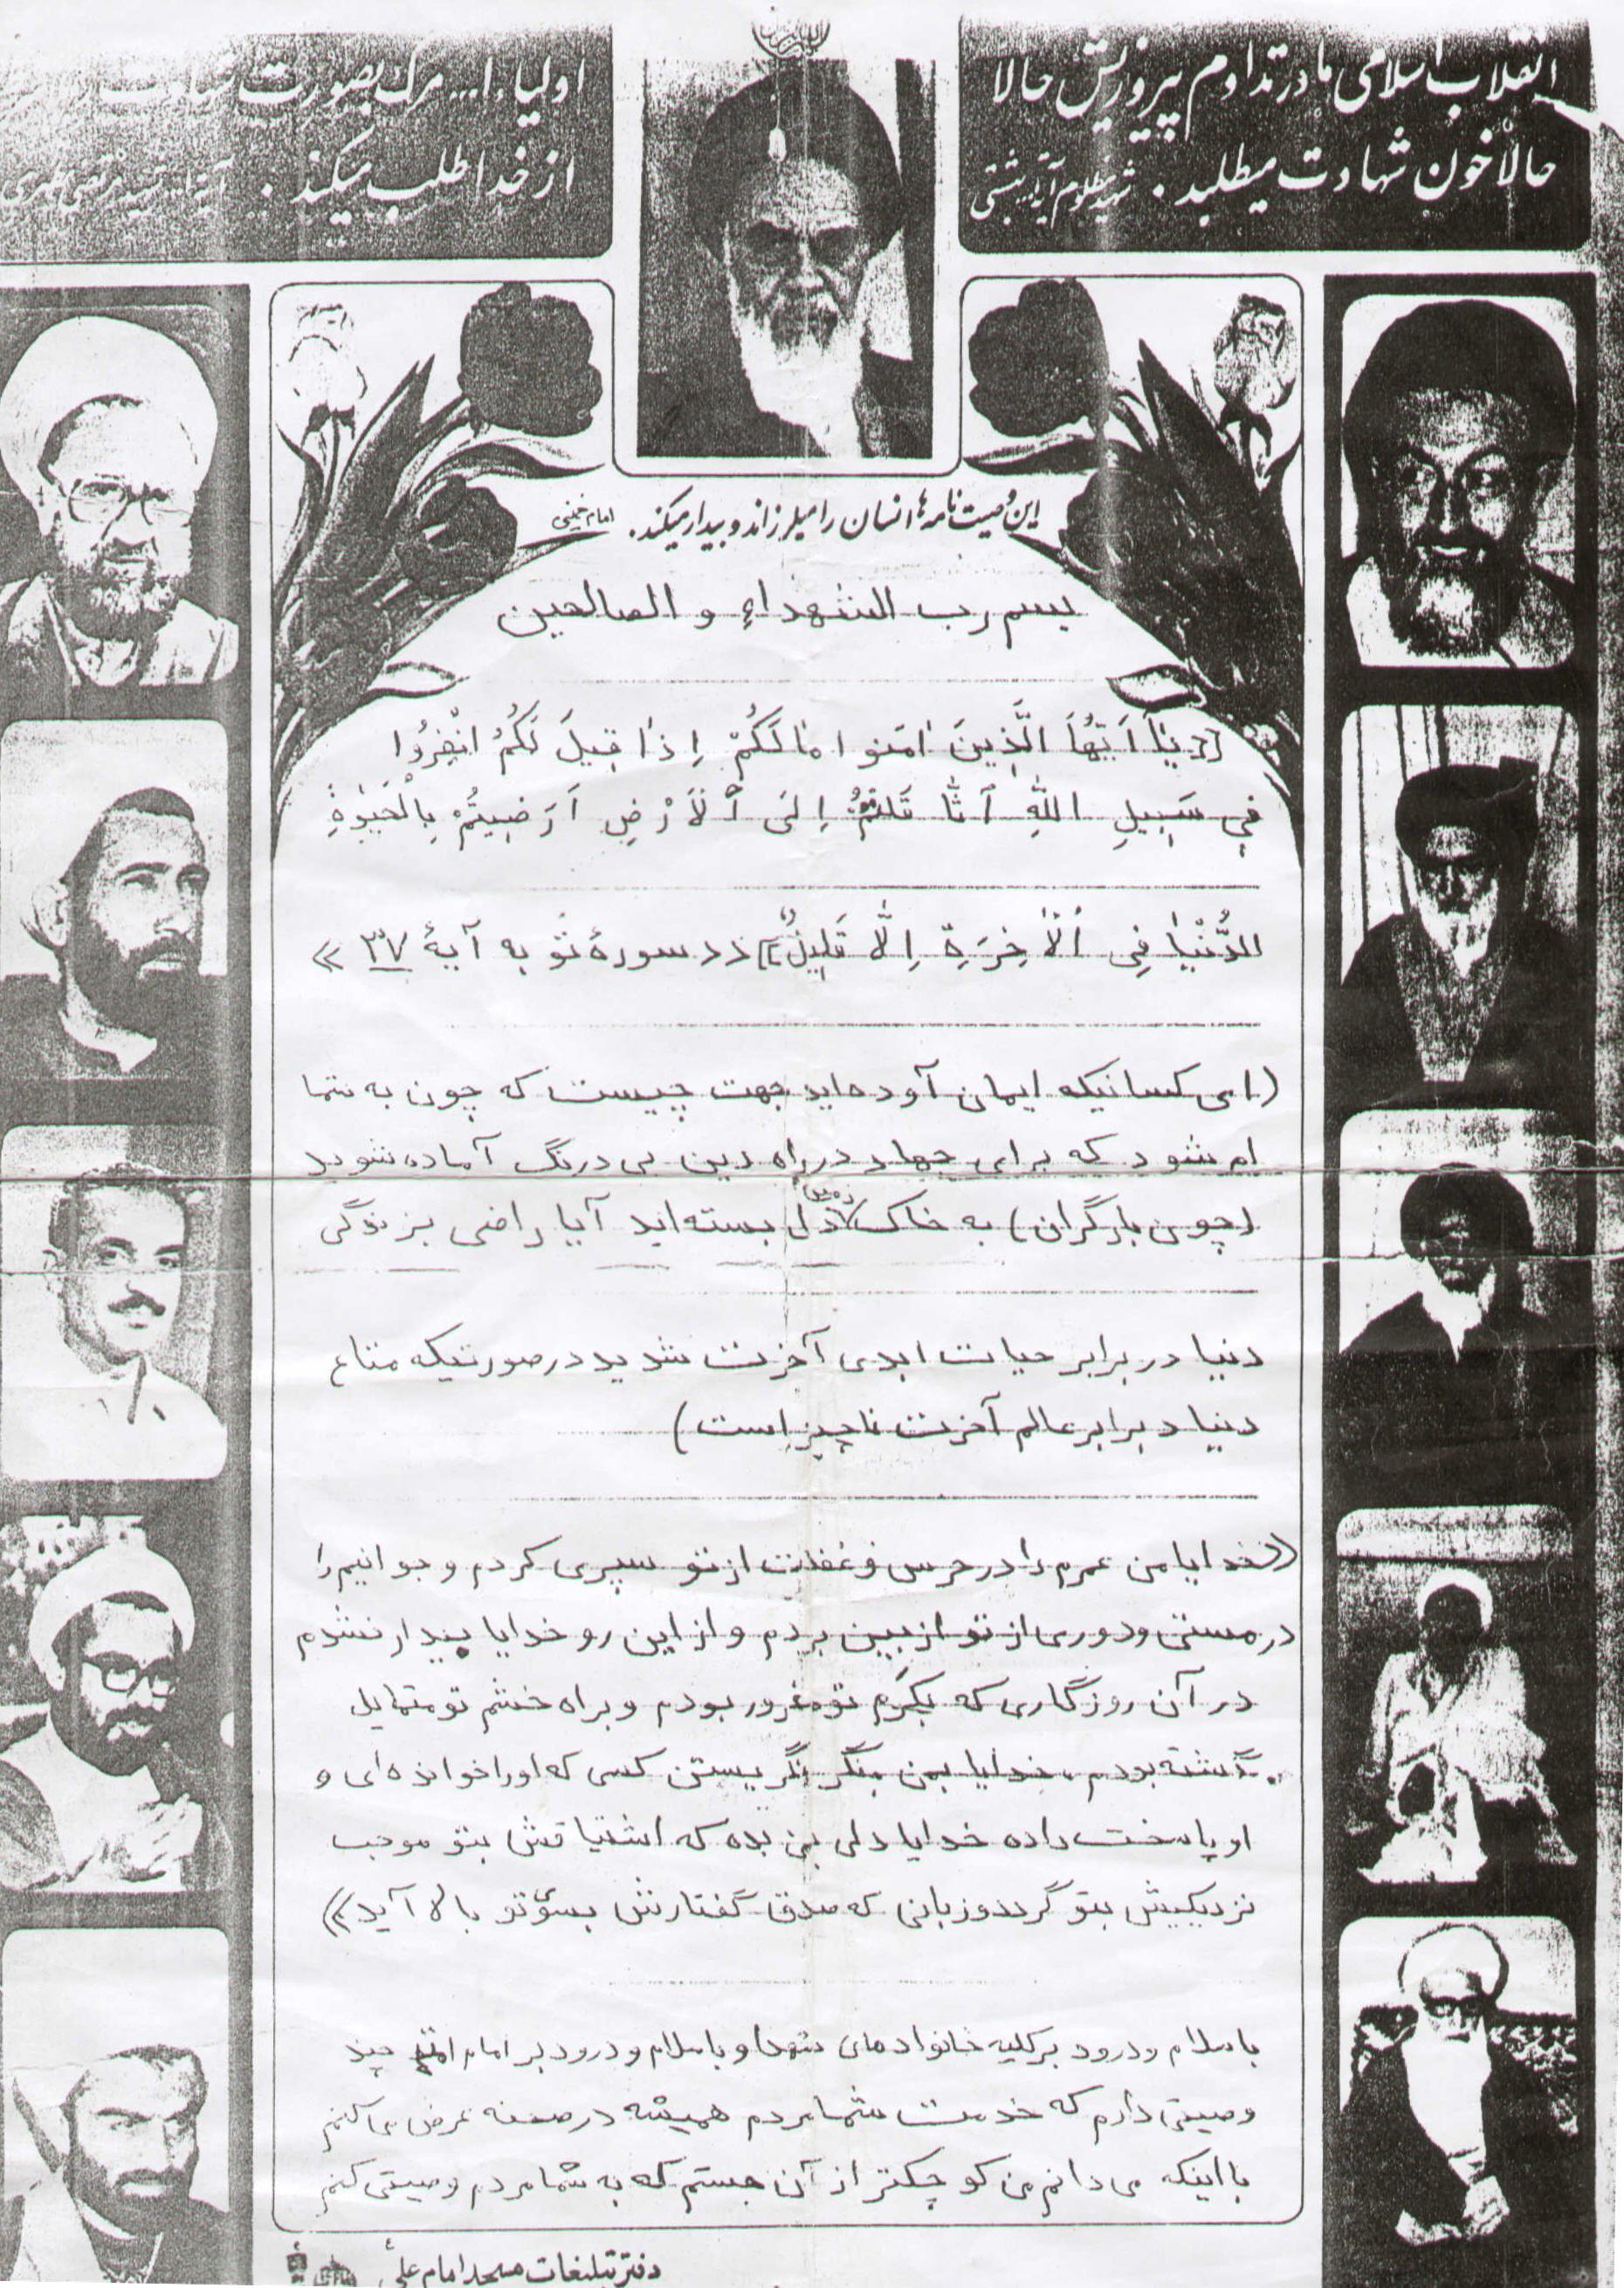 انقلاب اسلامی ما در تداوم پیروزیش حالا
حالا خون شهادت میطلبد . شهید مظلوم آیة... بهشتی
اولیاء ا... مرگ بصورت شهادت را
از خدا طلب میکند . آیة ا... شهید مرتضی مطهری
این وصیت نامه ها انسان را میلرزاند و بیدار میکند . امام خمینی
بسم رب الشهداءِ و الصالحین
((یٰاَ اَیُّهاَ الَّذِینَ اٰمَنو ا مٰا لَکُمْ اِ ذٰا قٖیلَ لَکُمُ انْفِرُوا
فٖی سَبٖیلِ اللّٰهِ اَثّٰا قَلْتُمْ اِلَی اَلْاَرْضِ اَرَضٖیتُمْ بِالْحَیٰوةِ
الدُّنْیٰا فِی اْلٰاخِرَةِ اِلّٰا قَلٖیلٌ)) ((سورهٔ تو به آیهٔ ۳۷ ))
(ای کسانیکه ایمان آوده اید جهت چیست که چون به شما
ام شود که برای جهاد در راه دین بی درنگ آماده شوید
(چون بار گران) به خاک زمین دل بسته اید آیا راضی بزندگی
دنیا در برابر حیات ابدی آخرت شدید در صورتیکه متاع
دنیا د برابر عالم آخرت ناچیز است)
((خدایا من عمرم را در حرس و غفلت از تو سپری کردم و جوانیم را
در مستی و دوری از تو از بین بردم و از این رو خدایا بیدار نشدم
در آن روزگاری که بکرم تو مغرور بودم و براه خشم تو متمایل
گشته بودم ، خدایا بمن بنگر نگریستن کسی که او را خوانده ای و
او پاسخت داده خدایا دلی بمن بده که اشتیاقش بتو موجب
نزدیکیش بتو گردد و زبانی که صدق گفتارش بسؤی تو بالا آید))
با سلام و درود بر کلیه خانواده های شهدا و با سلام و درود بر امام امت چند
وصیتی دارم که خدمت شما مردم همیشه در صحنه عرض می کنم
با اینکه می دانم من کو چکتر از آن هستم که به شما مردم وصیتی کنم
دفتر تبلیغات مسجد امام علی